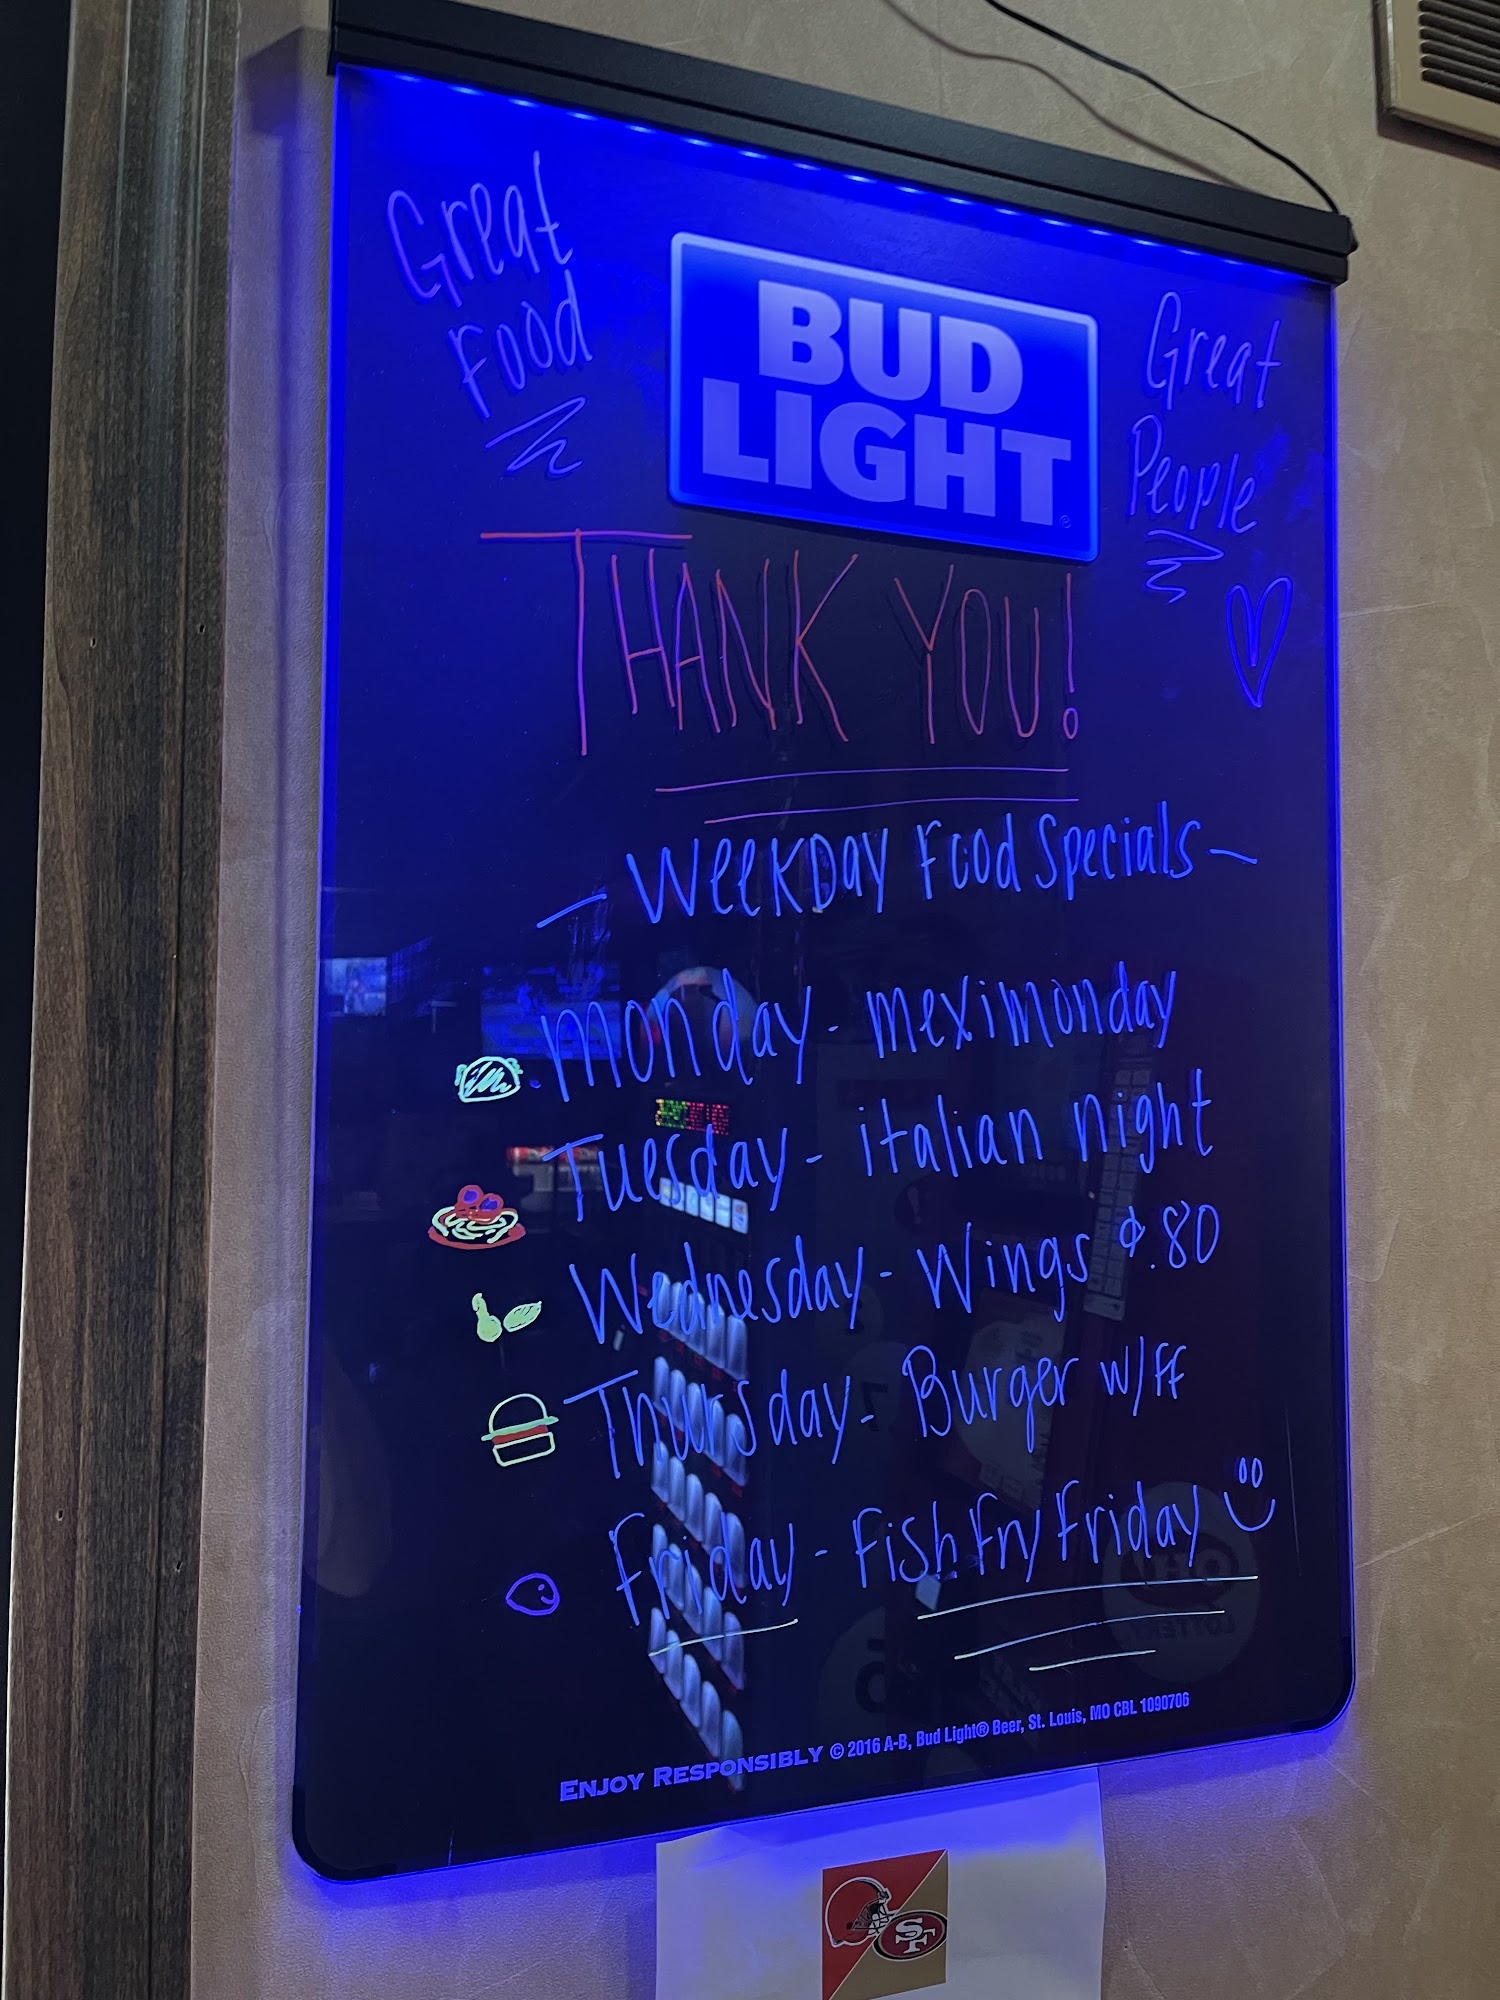 Great
Food
BUD
LIGHT
Great
People
THANK YOU!
— Weekday Food Specials —
monday - meximonday
Tuesday - italian night
Wednesday - Wings ¢.80
Thursday - Burger w/ff
Friday - Fish Fry Friday
Enjoy Responsibly © 2016 A-B, Bud Light® Beer, St. Louis, MO CBL 1090706
SF